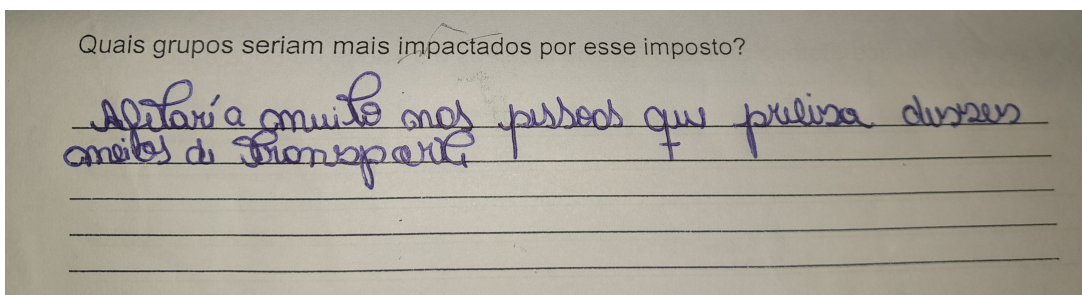 Quais grupos seriam mais impactados por esse imposto?
Afetaría muito nas pessoas que precisa desses
meios de Transporte